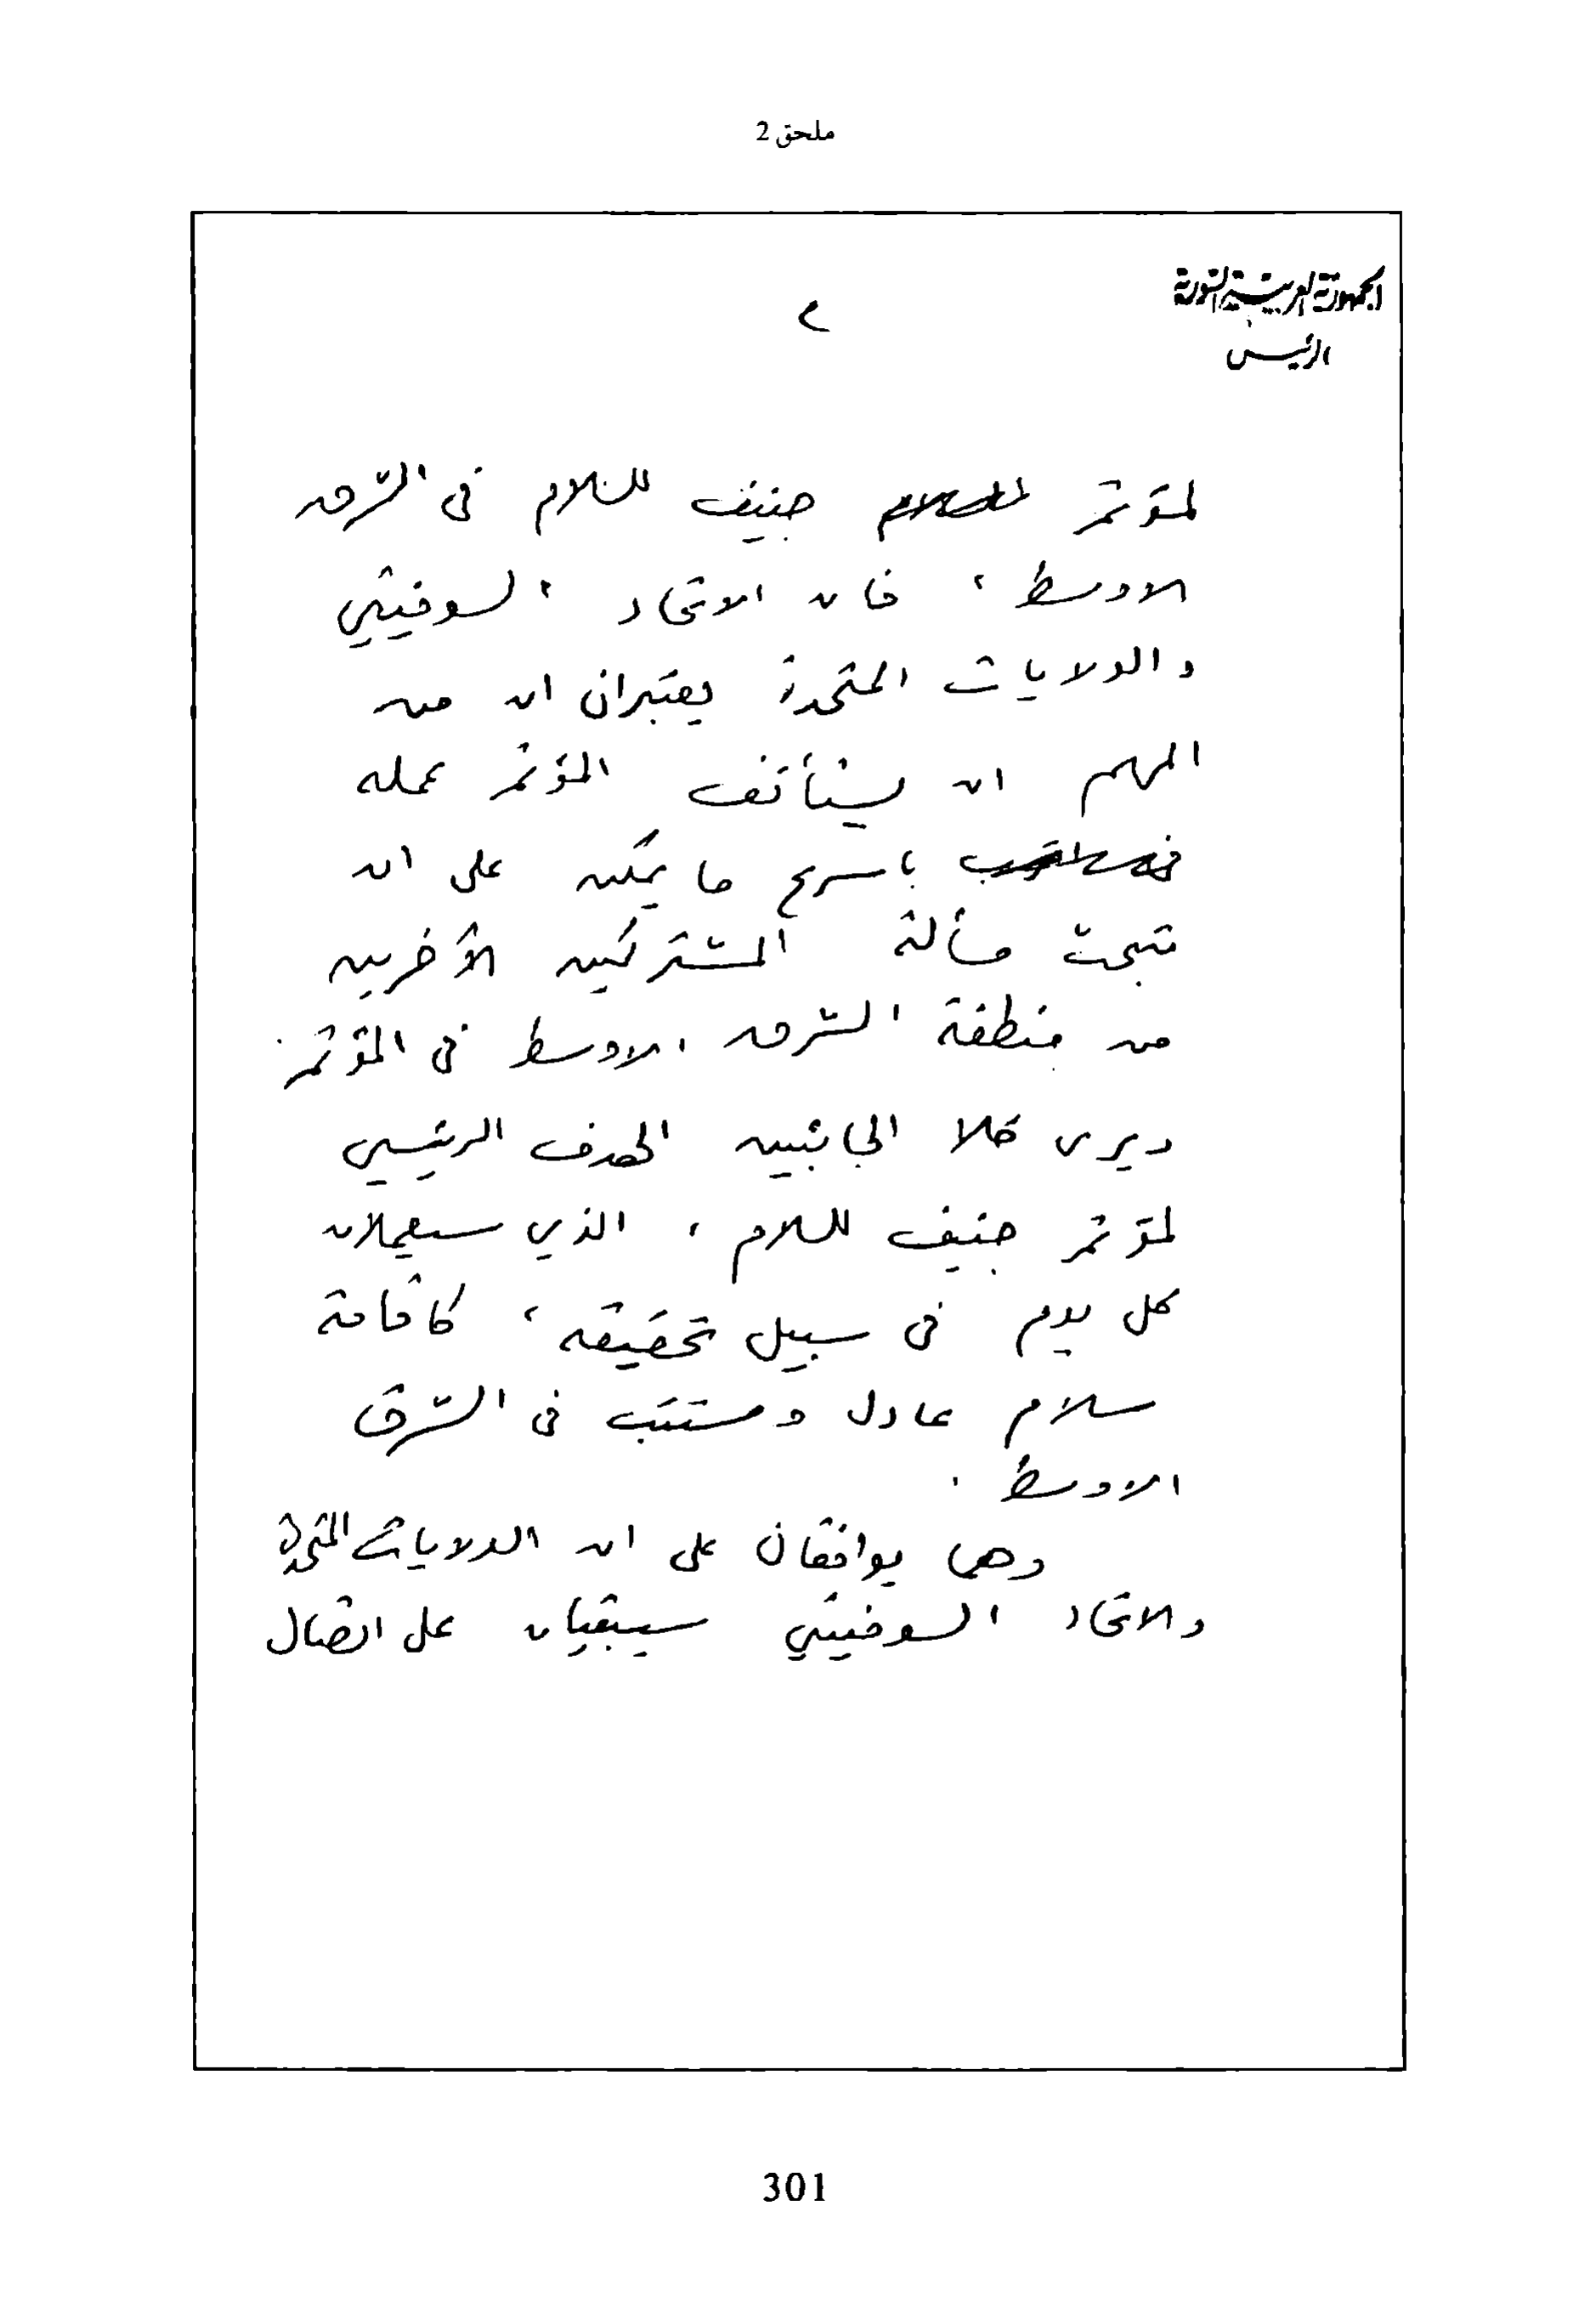 ملحق 2
الجمهورية العربية السورية
الرئيس
٢
لمؤتمر جنيف للسلام في الشرق
الاوسط ، فان الاتحاد السوفيتي
والولايات المتحدة يعتبران ان من
المهم ان يستأنف المؤتمر عمله
باسرع ما يمكن على ان
تبحث مسألة المشتركين الأخرين
من منطقة الشرق الاوسط في المؤتمر .
ويرى كلا الجانبين الهدف الرئيسي
لمؤتمر جنيف للسلام ، الذي سيعملان
كل يوم في سبيل تحقيقه ، كاقامة
سلام عادل ومستتب في الشرق
الاوسط .
وهما يوافقان على ان الولايات المتحدة
والاتحاد السوفيتي سيبقيان على اتصال
301